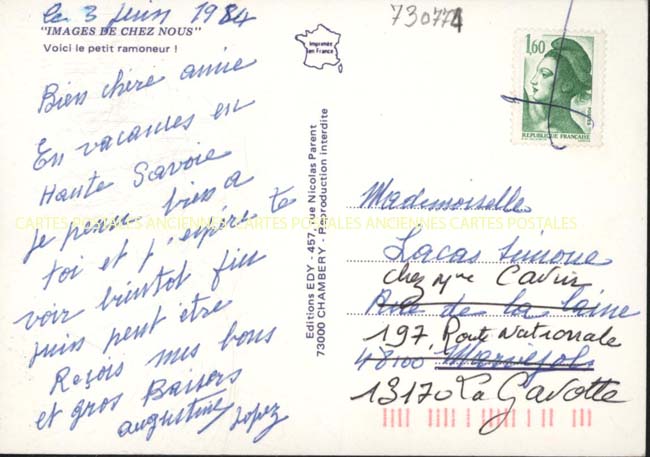 le 3 juin 1984
"IMAGES DE CHEZ NOUS"
Voici le petit ramoneur !
Bien chère amie
En vacances en
Haute Savoie
Je pense bien a
toi et j'espère te
voir bientot fin
juin peut être
Reçois mes bons
et gros Baisers
augustine Lopez
730774
Imprimée
en France
Editions EDY - 457, rue Nicolas Parent
73000 CHAMBERY - Reproduction Interdite
1,60
POSTES
REPUBLIQUE FRANÇAISE
Mademoiselle
Lacas Simone
chez Mme
Rue de la laine
197, Route Nationale
48100 Marvejols
13170 La Gavotte
CARTES POSTALES ANCIENNES CARTES POSTALES ANCIENNES CARTES POSTALES